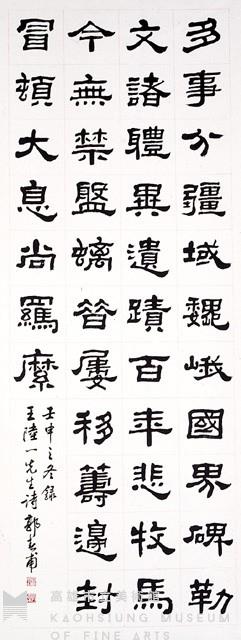 多事分疆域巍峨國界碑勒
文諸體異遺蹟百年悲牧馬
今無禁盤螭昔屢移籌邊封
冒頓大息尚羈縻
壬申之冬錄
王陸一先生詩 郭
高雄市立美術館
KAOHSIUNG MUSEUM
OF FINE ARTS